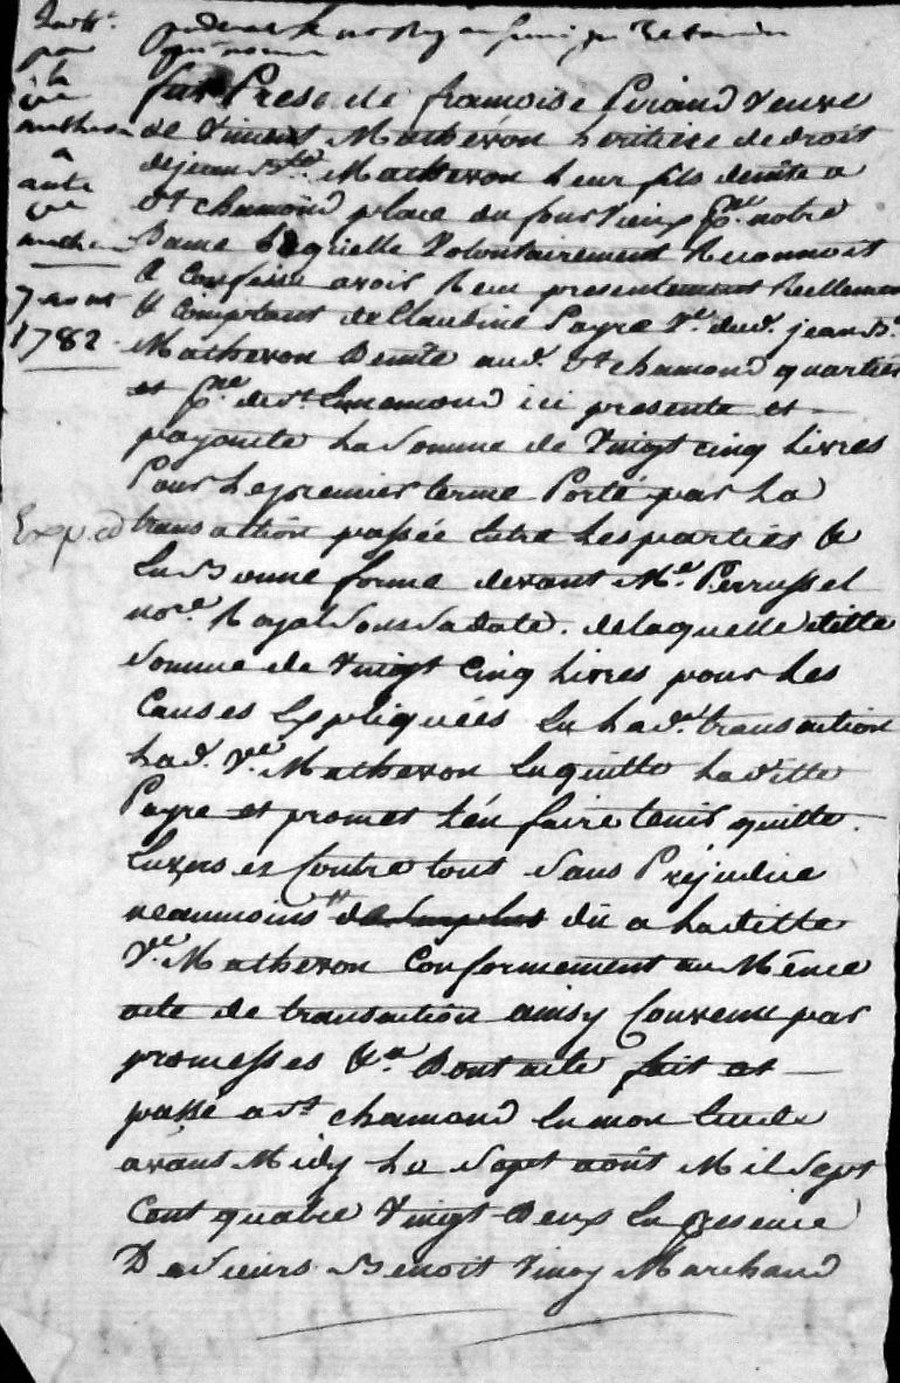 quitt.
par
la
ve
matheron
a
autre
ve
matheron
7 aout
1782
Exp. ed
fut Prese. de francoise Piraud veuve
de Vincent Mathevon heritiere de droit
de jean Bte. Mathevon leur fils demte a
St chamond place du four vieux psse. notre
Dame Laquelle Volontairement Reconnoit
& Confesse avoir Recu presentement Reellement
& Comptant de Claudine Payre Ve. dud. jean Bte.
Mathevon Demte aud. St chamond quartier
et psse. de St. Ennemond ici presente et
payante la Somme de Vingt cinq Livres
Pour Le premier terme Porté par La
transaction passée Entre Les parties &
En Bonne forme devant Me. Perrussel
nore. Royal Sous Sa date. de laquelle ditte
Somme de Vingt Cinq Livres pour Les
Causes Expliquées En Lade. transaction
Lad. Ve. Mathevon En quitte Laditte
Payre et promet L'en faire tenir quitte
Envers et Contre tous Sans Préjudice
neanmoins du Surplus dû a Laditte
Ve. Mathevon Conformement au Même
acte de transaction ainsy Convenu par
promesses &a. Dont acte fait et
passé a St chamond En mon Etude
avant Midy Le Sept aoust Mil Sept
Cent quatre Vingt Deux En presence
De Sieurs Benoit Marchand